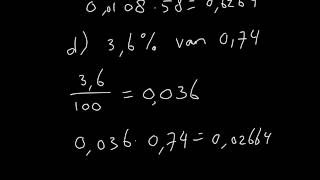 0,0108 · 58 = 0,6264
d) 3,6% van 0,74
3,6
100
= 0,036
0,036 · 0,74 = 0,02664